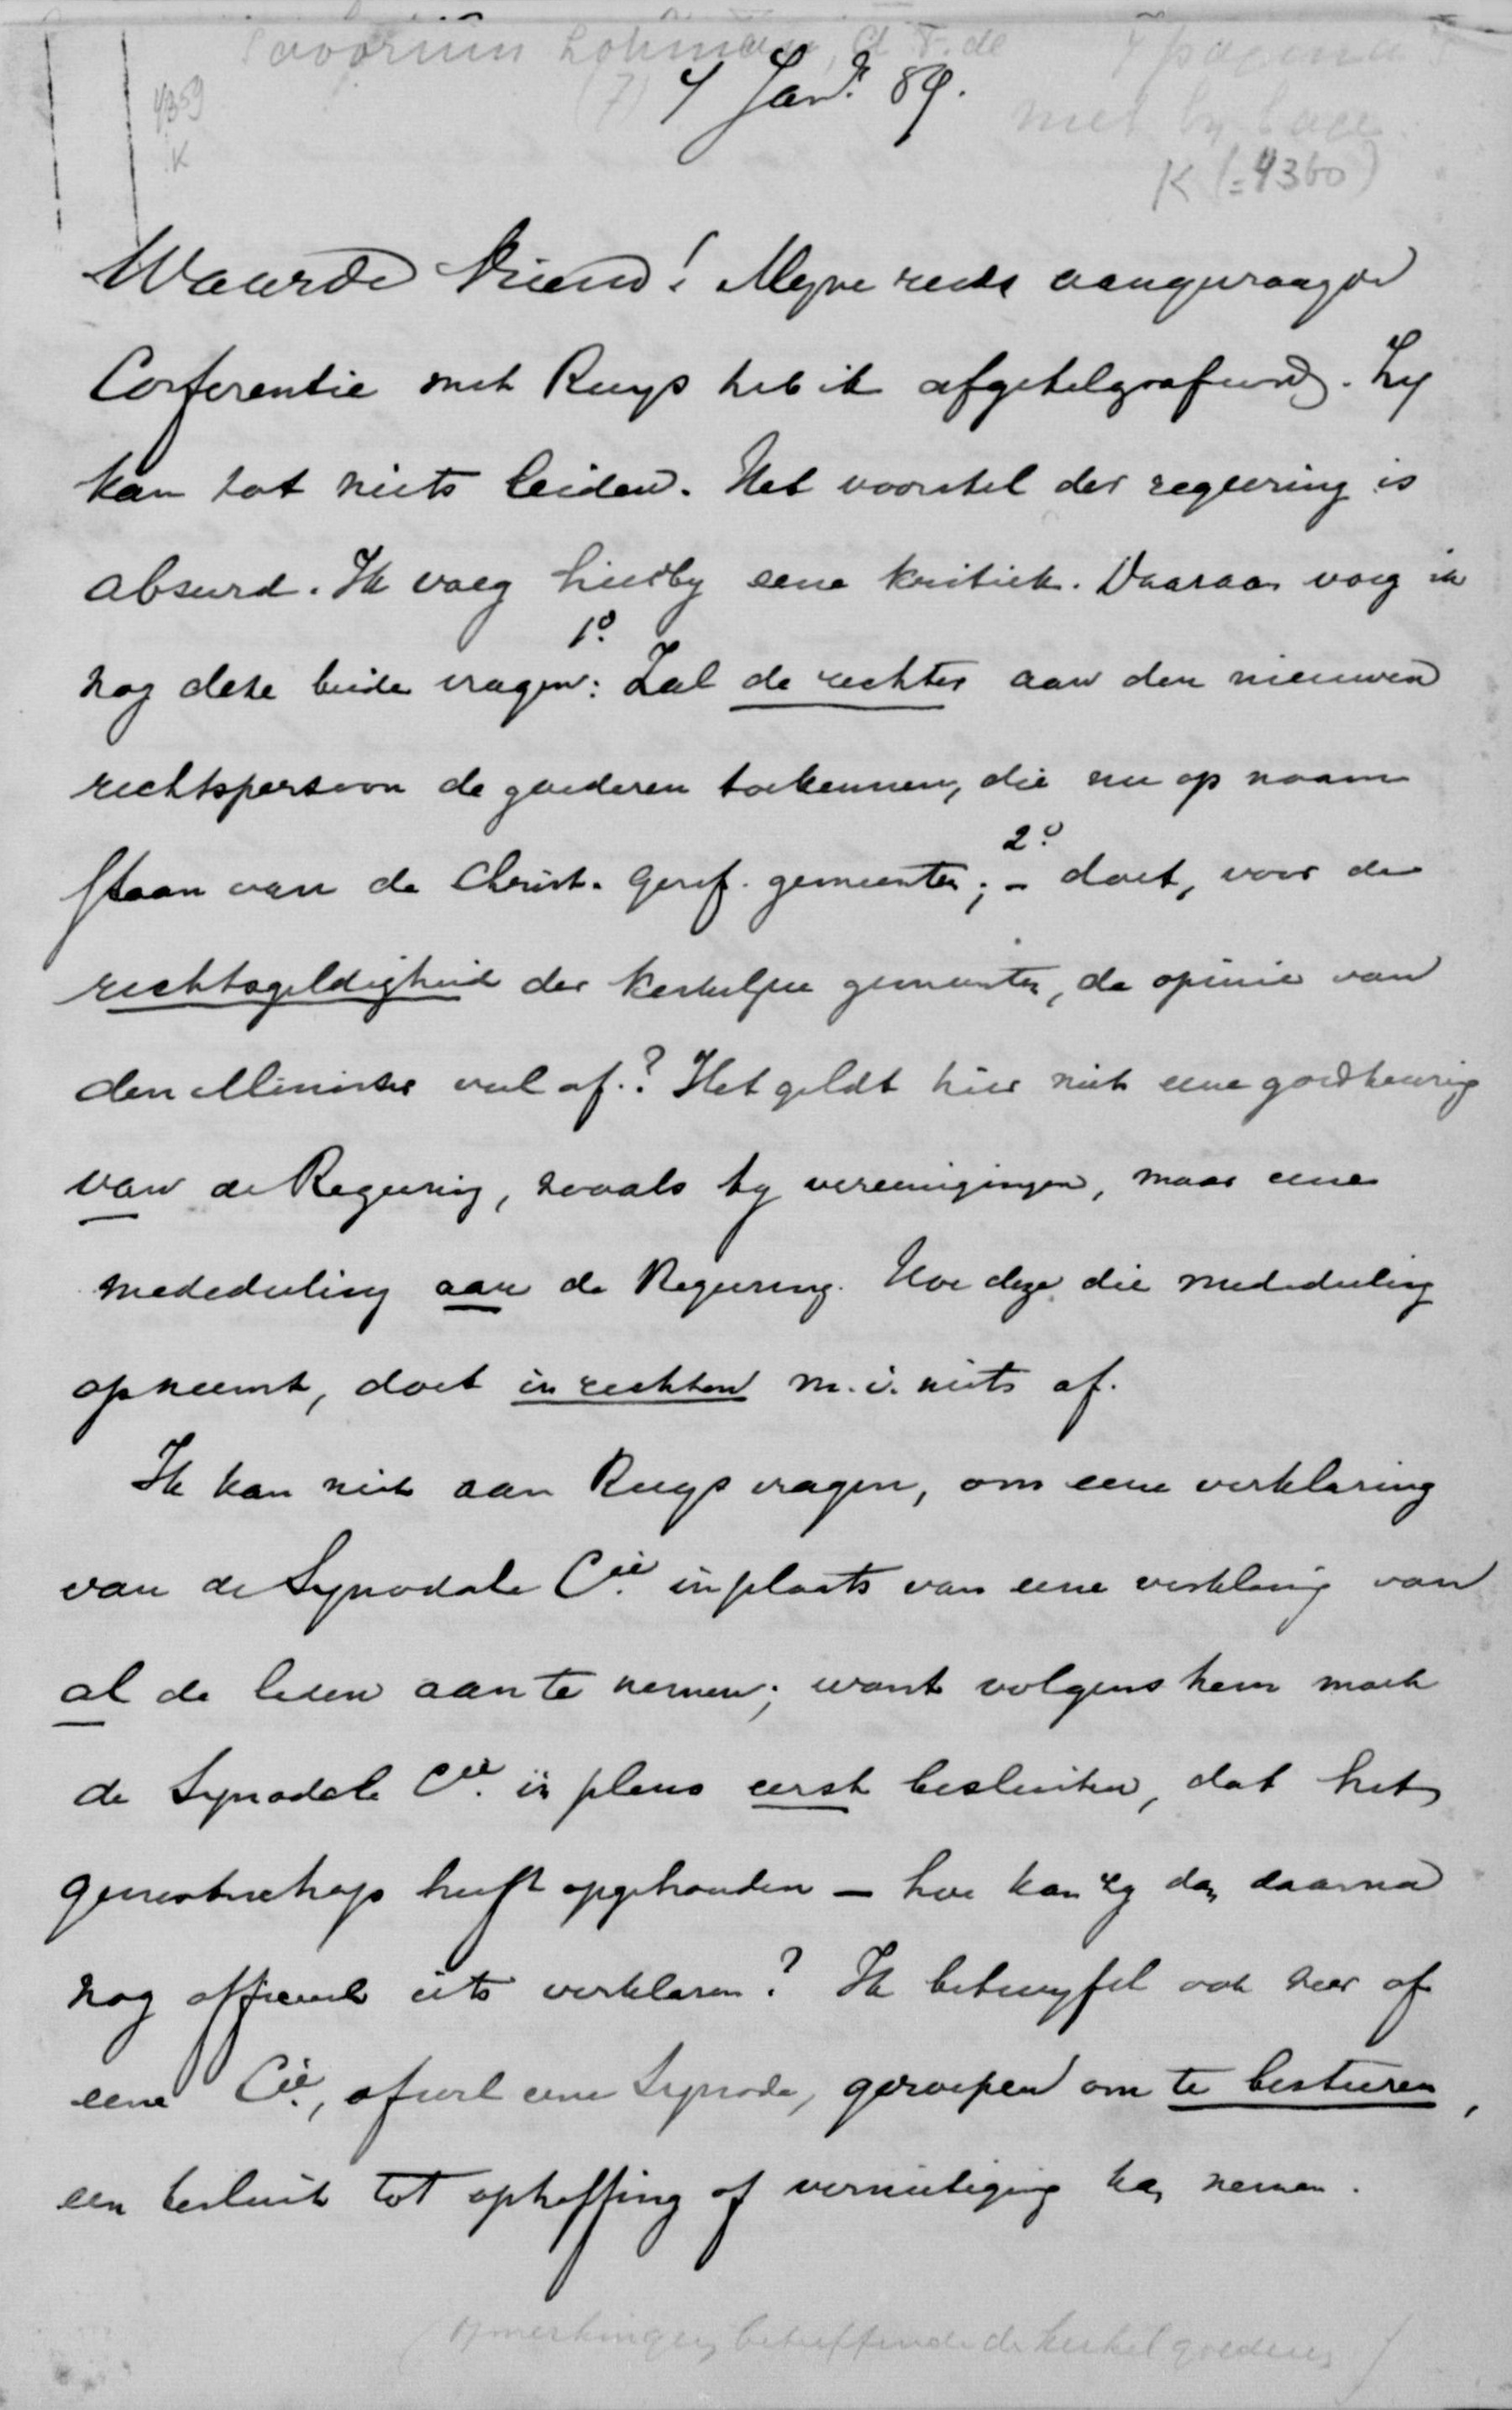 Savornin Lohman, A F. de
4 pagina's
(7) 4 Jan.r 89.
met bylage
4359
K
K (=4360)
Waarde Vriend! Myne reeds aangevraagde
Conferentie met Ruys heb ik afgetelgrafeerd. Zy
kan tot niets leiden. Het voorstel der regeering is
absurd. Ik voeg hierby eene kritiek. Daaraan voeg ik
nog deze beide vragen: 1o. Zal de rechter aan den nieuwen
rechtspersoon de goederen toekennen, die nu op naam
staan van de Christ. Geref. gemeenten; - 2o. doet, voor de
rechtsgeldigheid der kerkelyke gemeenten, de opinie van
den Minister veel af.? Het geldt hier niet eene goedkeuring
van de Regeering, zooals by vereenigingen, maar eene
mededeeling aan de Regeering. Hoe deze die mededeeling
opneemt, doet in rechten m.i. niets af.
Ik kan niet aan Ruys vragen, om eene verklaring
van de Synodale Cie. in plaats van eene verklaring van
al de leden aan te nemen; want volgens hem moet
de Synodale Cie. in pleno eerst besluiten, dat het
genootschap heeft opgehouden — hoe kan zy dan daarna
nog officieel iets verklaren? Ik betwyfel ook zeer of
eene Cie., ofwel eene Synode, geroepen om te besturen,
een besluit tot opheffing of vernietiging kan nemen.
(opmerkingen betreffende de kerkel goederen)